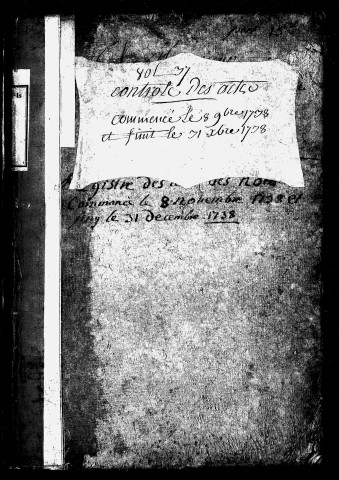 vol 77
controle des acte
commencé le 8 9bre 1738
et finit le 31 xbre 1738
Registre des des
Commencé le 8 novembre 1738 et
finy le 31 decembre 1738